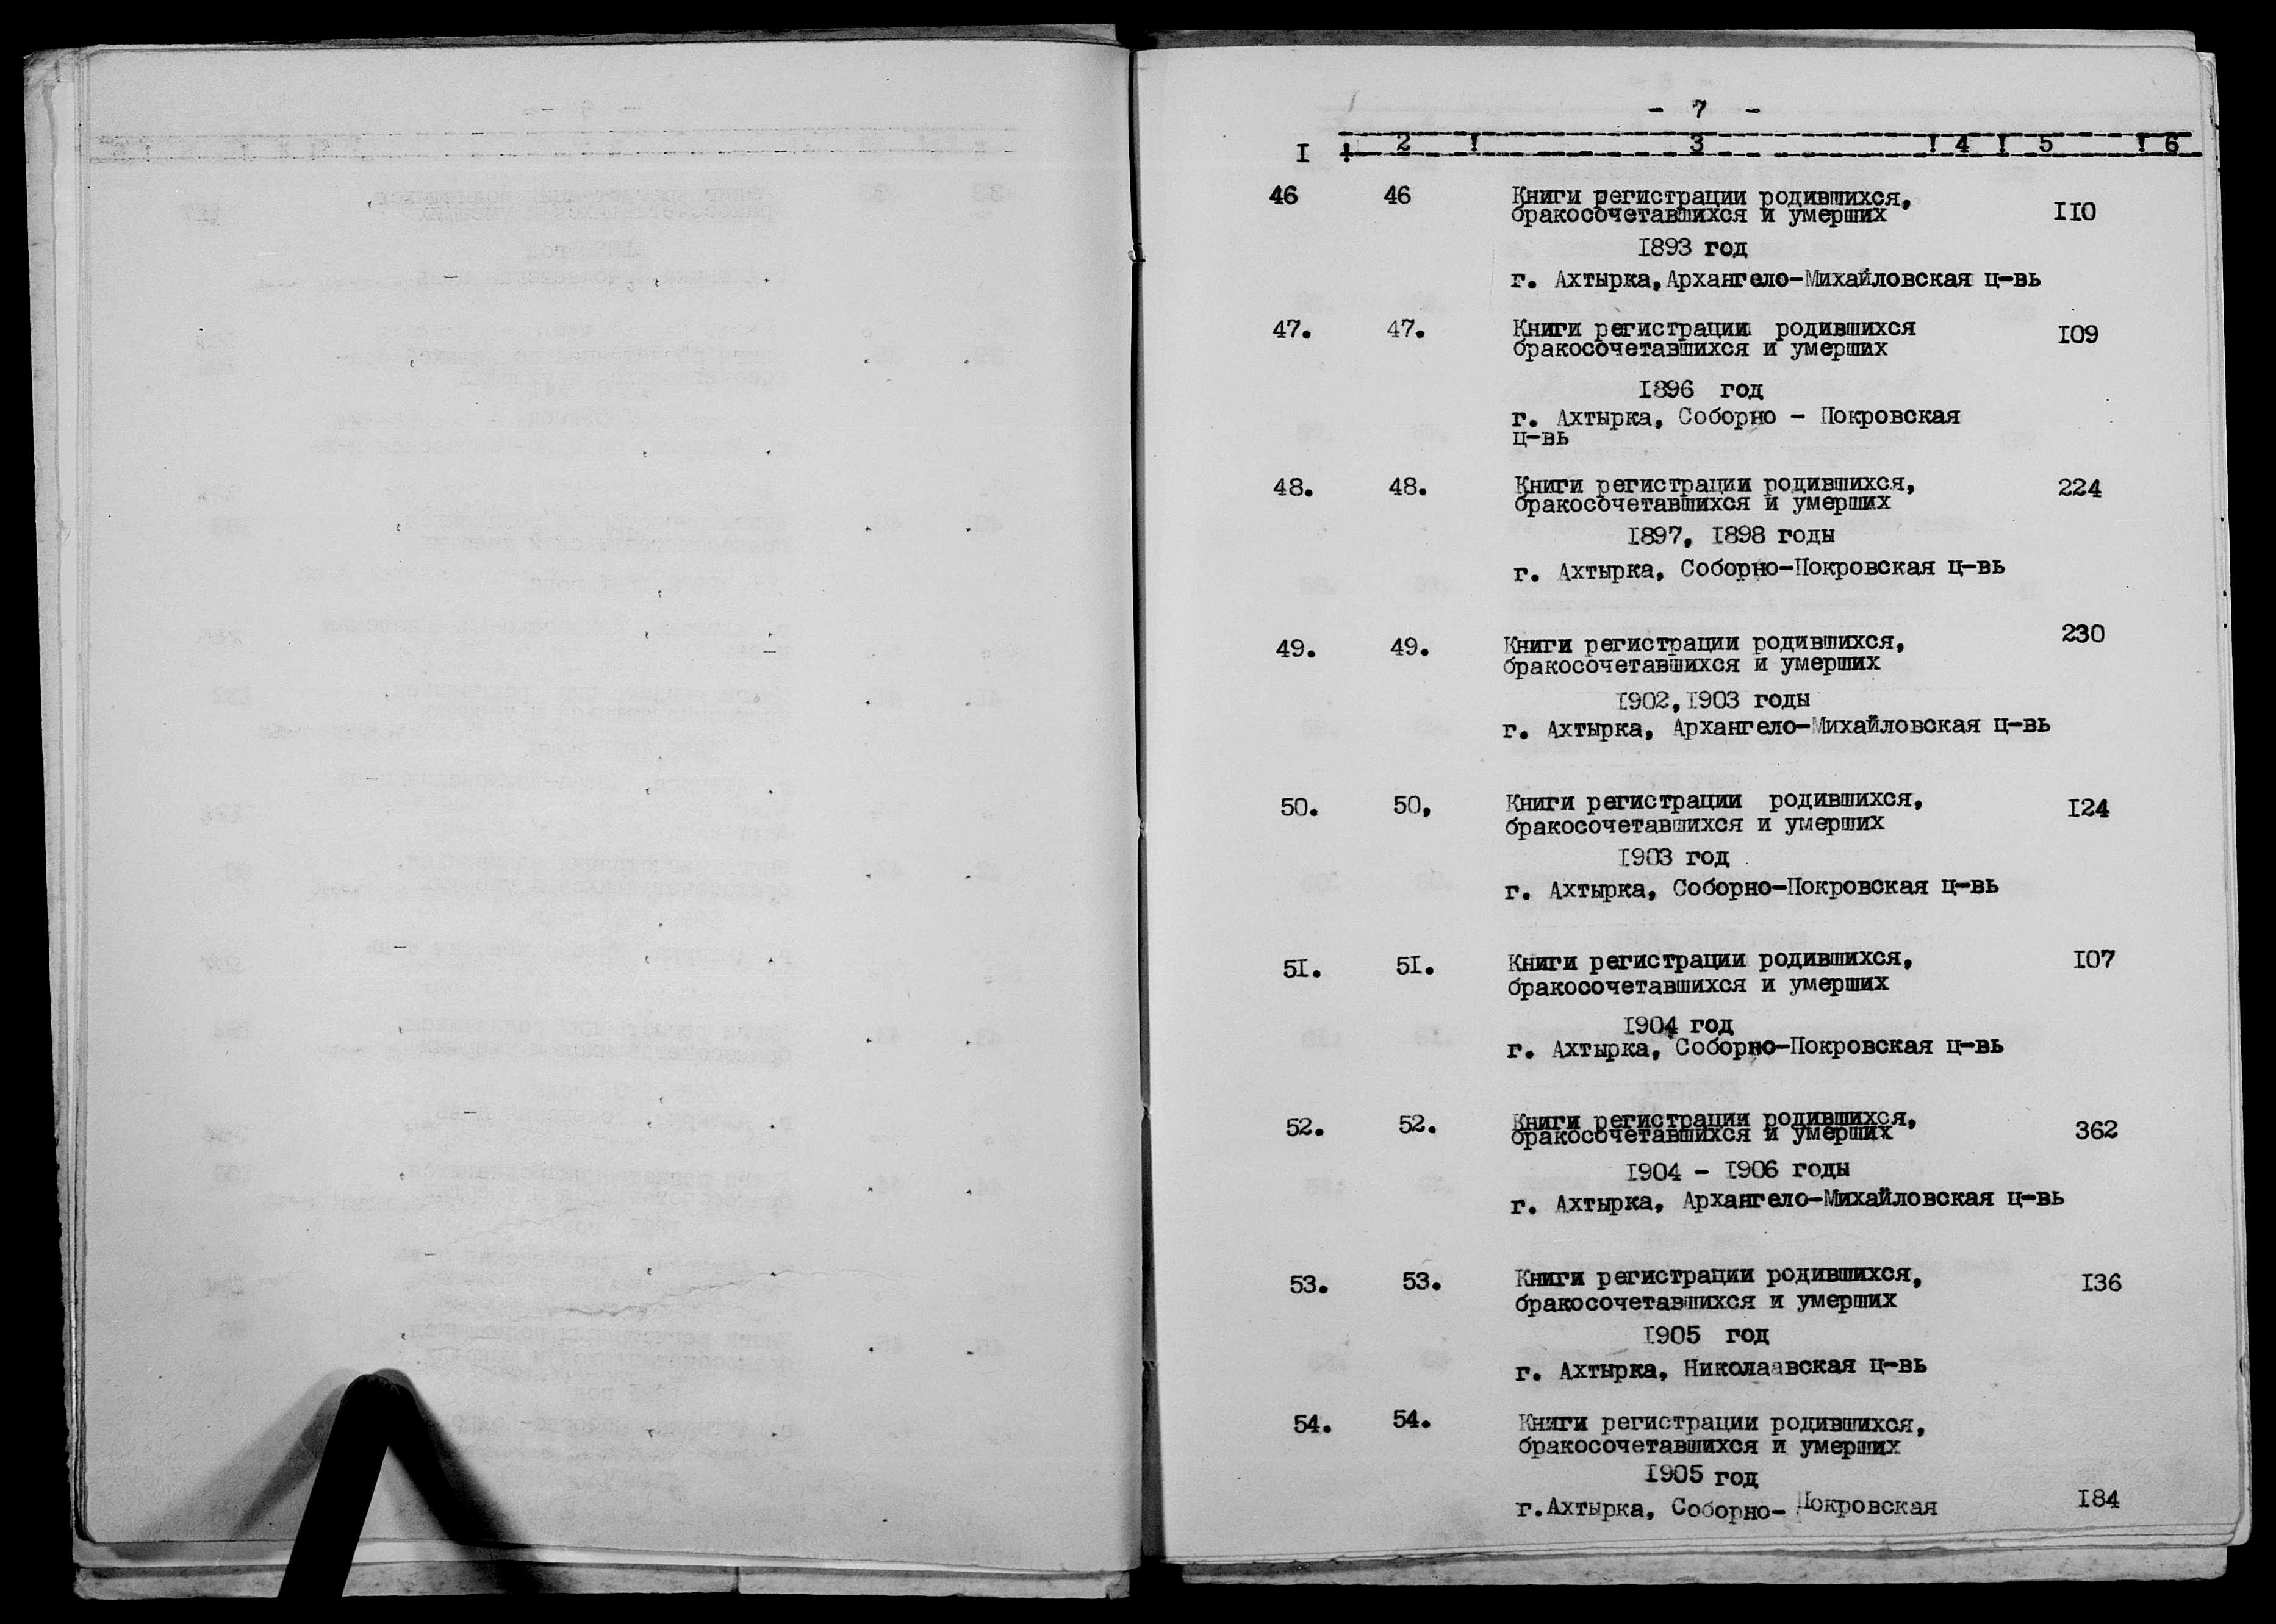 - 7 -
I ! 2 ! 3 ! 4 ! 5 ! 6
46 46 Книги регистрации родившихся,
бракосочетавшихся и умерших II0
I893 год
г. Ахтырка, Архангело-Михайловская ц-вь
47. 47. Книги регистрации родившихся I09
бракосочетавшихся и умерших
I896 год
г. Ахтырка, Соборно - Покровская
ц-вь
48. 48. Книги регистрации родившихся, 224
бракосочетавшихся и умерших
I897, I898 годы
г. Ахтырка, Соборно-Покровская ц-вь
49. 49. Книги регистрации родившихся, 230
бракосочетавшихся и умерших
I902, I903 годы
г. Ахтырка, Архангело-Михайловская ц-вь
50. 50, Книги регистрации родившихся, I24
бракосочетавшихся и умерших
I903 год
г. Ахтырка, Соборно-Покровская ц-вь
5I. 5I. Книги регистрации родившихся, I07
бракосочетавшихся и умерших
I904 год
г. Ахтырка, Соборно-Покровская ц-вь
52. 52. Книги регистрации родившихся, 362
бракосочетавшихся и умерших
I904 - I906 годы
г. Ахтырка, Архангело-Михайловская ц-вь
53. 53. Книги регистрации родившихся, I36
бракосочетавшихся и умерших
I905 год
г. Ахтырка, Николаавская ц-вь
54. 54. Книги регистрации родившихся,
бракосочетавшихся и умерших
I905 год
г.Ахтырка, Соборно- Покровская I84